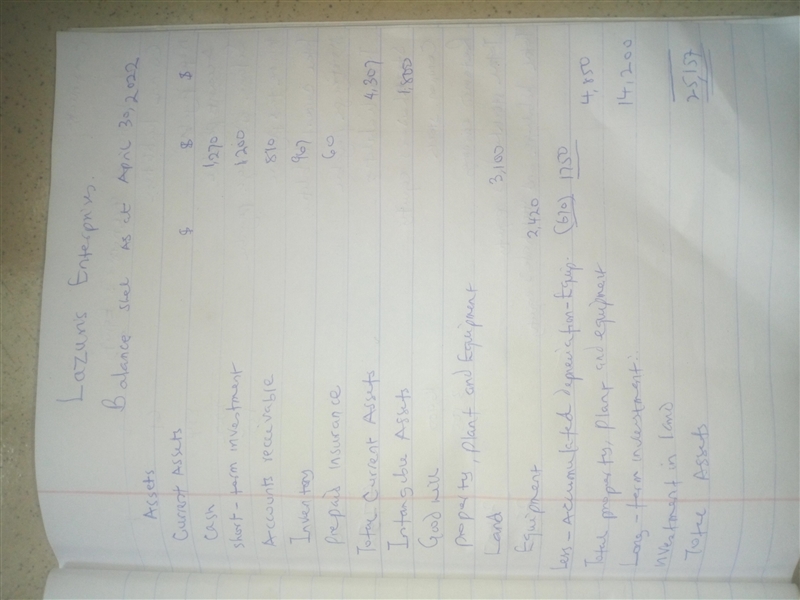 Lazuris Enterprises.
Balance sheet As at April 30, 2022
Assets $ $ $
Current Assets
Cash 1,270
Short-term investment 1200
Accounts receivable 870
Inventory 907
Prepaid insurance 60
Total Current Assets 4,307
Intangible Assets 1,800
Good will
Property, Plant and Equipment
Land 3,100
Equipment 2,420
Less - Accumulated depreciation - Equip. (670) 1750
Total property, plant and equipment 4,850
Long-term investment.
Investment in land 14,200
Total Assets 25,157